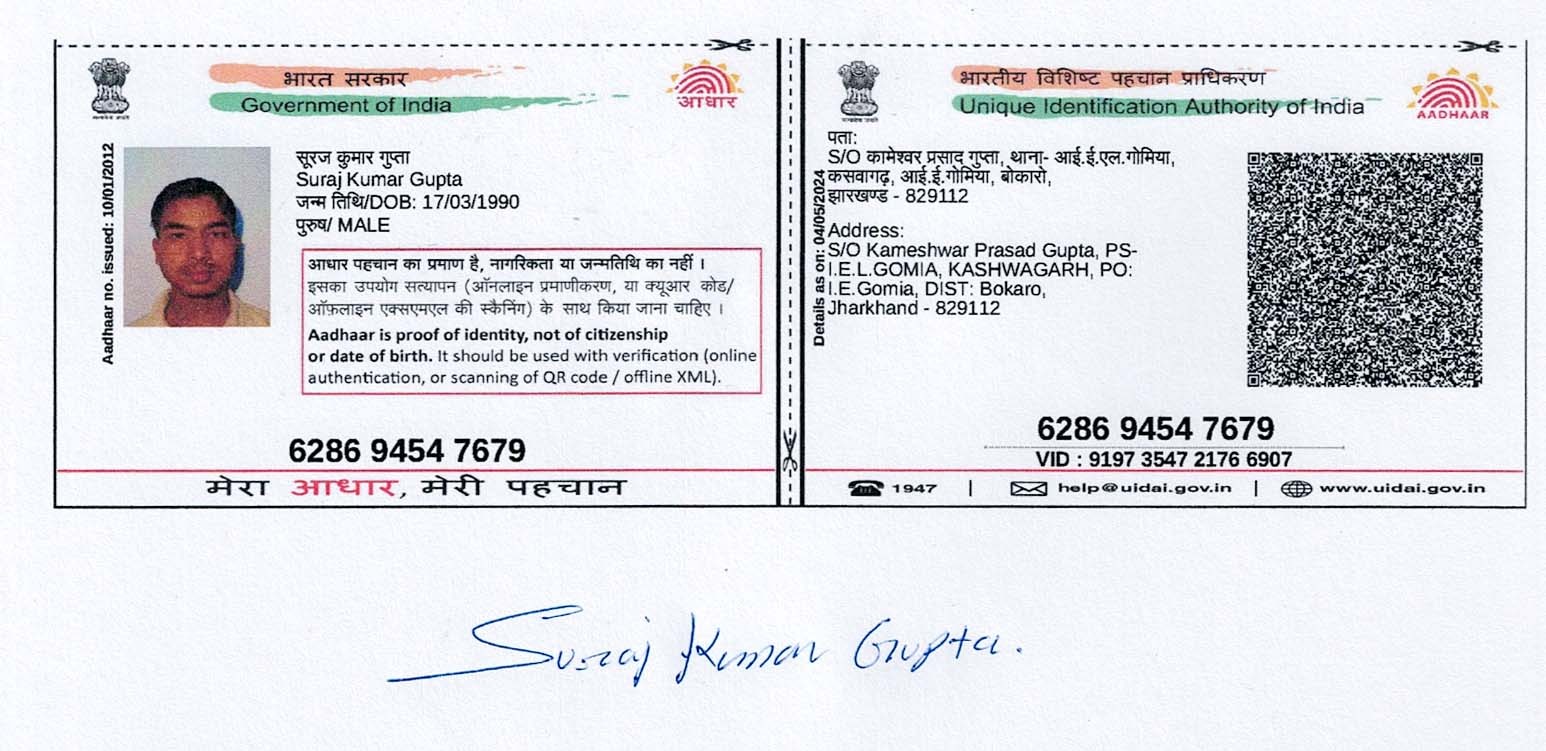 भारत सरकार
Government of India
आधार
Aadhaar no. issued: 10/01/2012
सूरज कुमार गुप्ता
Suraj Kumar Gupta
जन्म तिथि/DOB: 17/03/1990
पुरुष/ MALE
आधार पहचान का प्रमाण है, नागरिकता या जन्मतिथि का नहीं ।
इसका उपयोग सत्यापन (ऑनलाइन प्रमाणीकरण, या क्यूआर कोड/
ऑफ़लाइन एक्सएमएल की स्कैनिंग) के साथ किया जाना चाहिए ।
Aadhaar is proof of identity, not of citizenship
or date of birth. It should be used with verification (online
authentication, or scanning of QR code / offline XML).
6286 9454 7679
मेरा आधार, मेरी पहचान
भारतीय विशिष्ट पहचान प्राधिकरण
Unique Identification Authority of India
AADHAAR
Details as on: 04/05/2024
पता:
S/O कामेश्वर प्रसाद गुप्ता, थाना- आई.ई.एल.गोमिया,
कसवागढ़, आई.ई.गोमिया, बोकारो,
झारखण्ड - 829112
Address:
S/O Kameshwar Prasad Gupta, PS-
I.E.L.GOMIA, KASHWAGARH, PO:
I.E.Gomia, DIST: Bokaro,
Jharkhand - 829112
6286 9454 7679
VID : 9197 3547 2176 6907
1947 | help@uidai.gov.in | www.uidai.gov.in
Suraj Kumar Gupta.